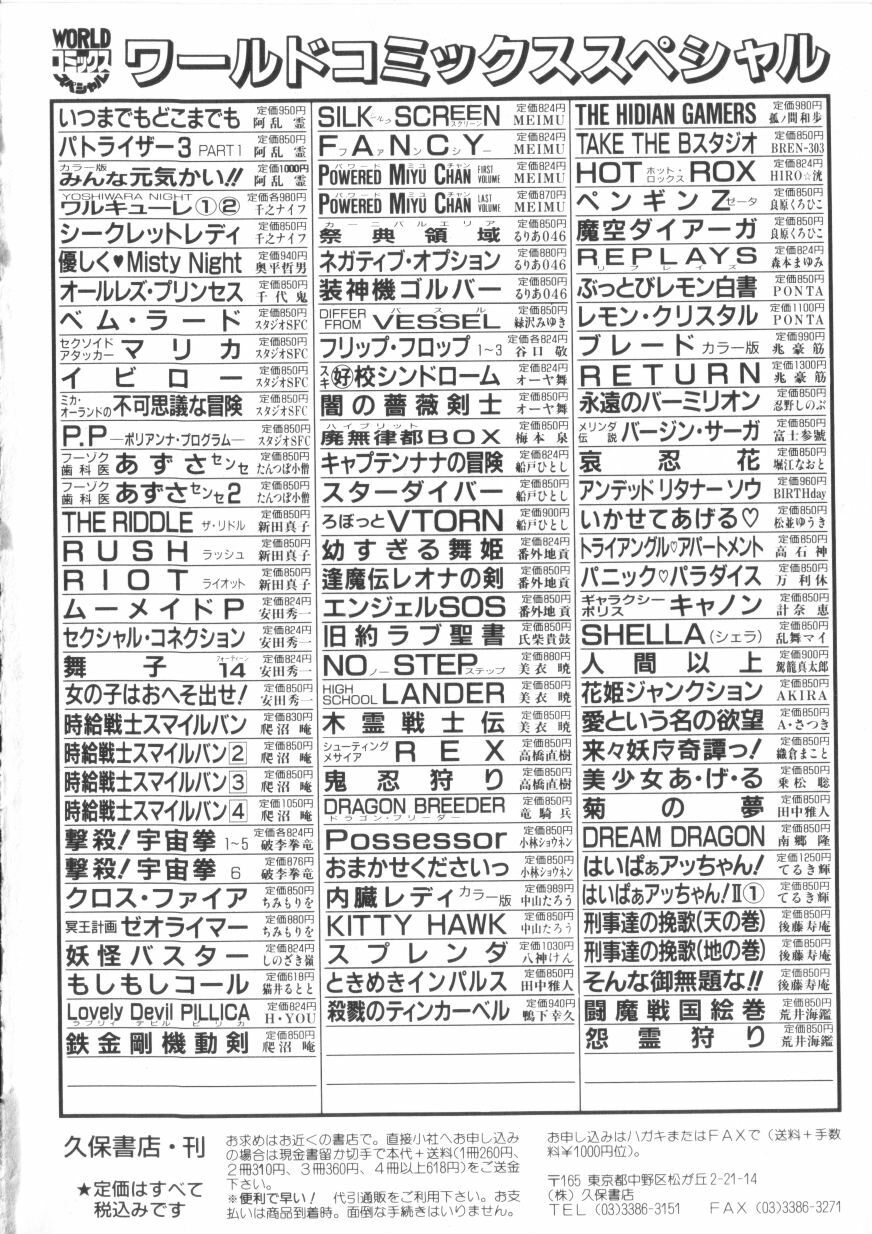 WORLD
コミックス
スペシャル
ワールドコミックススペシャル
いつまでもどこまでも 定価950円 阿乱霊
パトライザー3 PART1 定価850円 阿乱霊
カラー版 みんな元気かい!! 定価1000円 阿乱霊
YOSHIWARA NIGHT ワルキューレ①② 定価各980円 千之ナイフ
シークレットレディ 定価850円 千之ナイフ
優しく♥Misty Night 定価940円 奥平哲男
オールレズ・プリンセス 定価850円 千代鬼
ベム・ラード 定価850円 スタジオSFC
セクソイドアタッカー マリカ 定価850円 スタジオSFC
イビロー 定価850円 スタジオSFC
ミカ・オーランドの不可思議な冒険 定価850円 スタジオSFC
P.P ―ポリアンナ・プログラム― 定価850円 スタジオSFC
フーゾク歯科医 あずさセンセ 定価850円 たんつぼ小僧
フーゾク歯科医 あずさセンセ2 定価850円 たんつぼ小僧
THE RIDDLE ザ・リドル 定価850円 新田真子
RUSH ラッシュ 定価850円 新田真子
RIOT ライオット 定価850円 新田真子
ムーメイドP 定価824円 安田秀一
セクシャル・コネクション 定価824円 安田秀一
舞子14 フォーティーン 定価824円 安田秀一
女の子はおへそ出せ! 定価850円 安田秀一
時給戦士スマイルバン 定価830円 爬沼庵
時給戦士スマイルバン2 定価850円 爬沼庵
時給戦士スマイルバン3 定価850円 爬沼庵
時給戦士スマイルバン4 定価1050円 爬沼庵
撃殺!宇宙拳 1~5 定価各824円 破李拳竜
撃殺!宇宙拳 6 定価876円 破李拳竜
クロス・ファイア 定価850円 ちみもりを
冥王計画 ゼオライマー 定価880円 ちみもりを
妖怪バスター 定価824円 しのざき嶺
もしもしコール 定価618円 猫井るとと
Lovely Devil PILLICA ラブリィ デビル ピリカ 定価824円 H・YOU
鉄金剛機動剣 定価850円 爬沼庵
SILK シルク SCREEN スクリーン 定価824円 MEIMU
FANCY ファンシー 定価824円 MEIMU
POWERED MIYU CHAN パワード ミユ チャン FIRST VOLUME 定価824円 MEIMU
POWERED MIYU CHAN パワード ミユ チャン LAST VOLUME 定価870円 MEIMU
祭典領域 カーニバルエリア 定価850円 るりあ046
ネガティブ・オプション 定価880円 るりあ046
装神機ゴルバー 定価850円 るりあ046
DIFFER FROM VESSEL 定価850円 緑沢みゆき
フリップ・フロップ 1~3 定価各824円 谷口敬
スキ㊛校シンドローム 定価824円 オーヤ舞
闇の薔薇剣士 定価850円 オーヤ舞
廃無律都BOX ハイブリット 定価850円 梅本泉
キャプテンナナの冒険 定価824円 船戸ひとし
スターダイバー 定価850円 船戸ひとし
ろぼっとVTORN 定価900円 船戸ひとし
幼すぎる舞姫 定価824円 番外地貢
逢魔伝レオナの剣 定価850円 番外地貢
エンジェルSOS 定価850円 番外地貢
旧約ラブ聖書 定価850円 氏柴貴鼓
NO ノー STEP ステップ 定価880円 美衣暁
HIGH SCHOOL LANDER 定価850円 美衣暁
木霊戦士伝 定価850円 美衣暁
シューティングメサイア REX 定価850円 高橋直樹
鬼忍狩り 定価850円 高橋直樹
DRAGON BREEDER ドラゴン・ブリーダー 定価850円 竜騎兵
Possessor 定価850円 小林ショウネン
おまかせくださいっ 定価850円 小林ショウネン
内臓レディ カラー版 定価989円 中山たろう
KITTY HAWK 定価850円 中山たろう
スプレンダ 定価1030円 八神けん
ときめきインパルス 定価850円 田中雅人
殺戮のティンカーベル 定価940円 鴨下幸久
THE HIDIAN GAMERS 定価980円 孤ノ間和歩
TAKE THE Bスタジオ 定価850円 BREN-303
HOT ROX ホット・ロックス 定価824円 HIRO☆洸
ペンギンZ ゼータ 定価850円 良原くろひこ
魔空ダイアーガ 定価850円 良原くろひこ
REPLAYS リプレイズ 定価824円 森本まゆみ
ぶっとびレモン白書 定価850円 PONTA
レモン・クリスタル 定価1100円 PONTA
ブレード カラー版 定価990円 兆豪筋
RETURN 定価1300円 兆豪筋
永遠のバーミリオン 定価850円 忍野しのぶ
メリンダ伝説 バージン・サーガ 定価850円 富士参號
哀忍花 定価850円 堀江なおと
アンデッドリタナーソウ 定価960円 BIRTHday
いかせてあげる♡ 定価850円 松並ゆうき
トライアングル♡アパートメント 定価850円 高石神
パニック♡パラダイス 定価850円 万利休
ギャラクシーポリス キャノン 定価850円 計奈恵
SHELLA(シェラ) 定価850円 乱舞マイ
人間以上 定価900円 駕籠真太郎
花姫ジャンクション 定価850円 AKIRA
愛という名の欲望 定価850円 A・さつき
来々妖庁奇譚っ! 定価850円 織倉まこと
美少女あ・げ・る 定価850円 乗松聡
菊の夢 定価850円 田中雅人
DREAM DRAGON 定価850円 南郷隆
はいぱぁアッちゃん! 定価1250円 てるき輝
はいぱぁアッちゃん!II① 定価850円 てるき輝
刑事達の挽歌(天の巻) 定価850円 後藤寿庵
刑事達の挽歌(地の巻) 定価850円 後藤寿庵
そんな御無題な!! 定価850円 後藤寿庵
闘魔戦国絵巻 定価850円 荒井海鑑
怨霊狩り 定価850円 荒井海鑑
久保書店・刊
★定価はすべて
税込みです
お求めはお近くの書店で。直接小社へお申し込み
の場合は現金書留か切手で本代+送料(1冊260円、
2冊310円、3冊360円、4冊以上618円)をご送金
下さい。
※便利で早い! 代引通販をご利用下さい。お支
払いは商品到着時。面倒な手続きはいりません。
お申し込みはハガキまたはFAXで(送料+手数
料¥1000円位)。
〒165 東京都中野区松が丘2-21-14
(株)久保書店
TEL (03)3386-3151 FAX (03)3386-3271